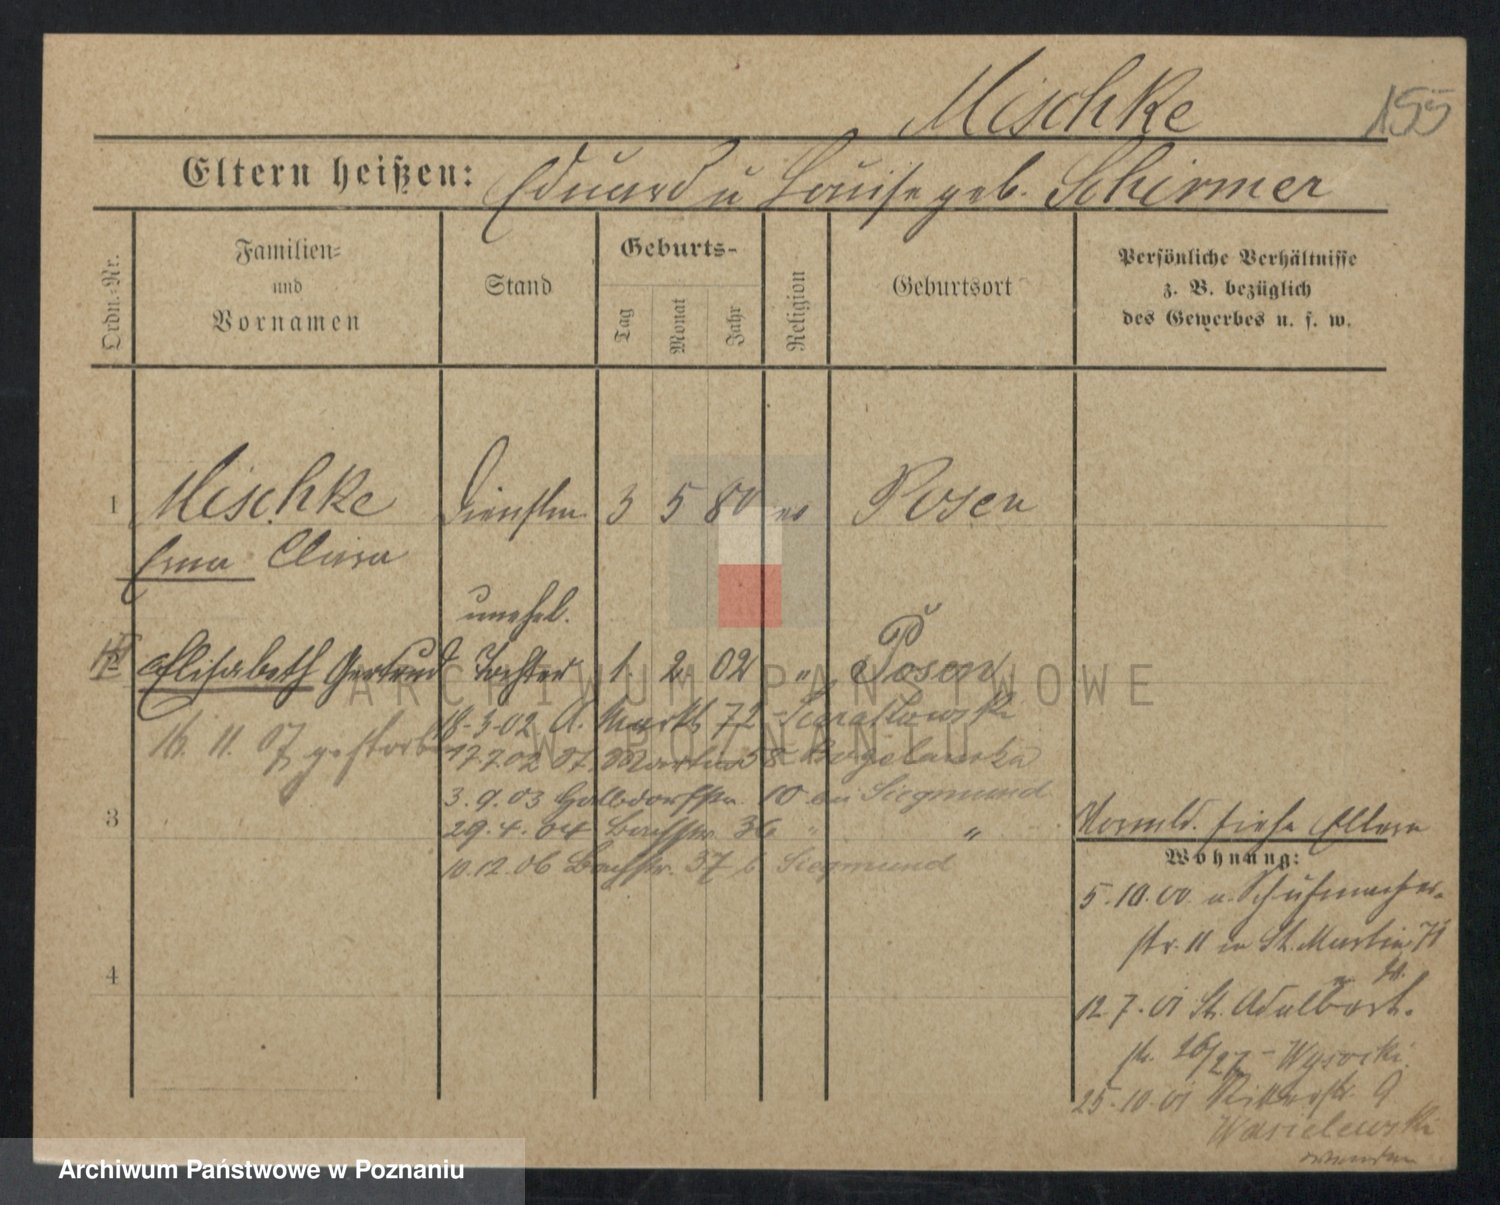 Mischke
155
Eltern heißen: Eduard u Louise geb. Schirmer
Ordn.-Nr.
Familien-
und
Vornamen
Stand
Geburts-
Tag
Monat
Jahr
Religion
Geburtsort
Persönliche Verhältnisse
z. B. bezüglich
des Gewerbes u. s. w.
1 Mischke Dienstm 3 5 80 ev Posen
Erna Clara
unehel.
2 Elisabeth Gertrud Tochter 1. 2 02 " Posen
ARCHIWUM PAŃSTWOWE
W POZNANIU
18.3.02 A. Markt 72
16. 11. 07 gestorben
17.7.02 58
3.9.03 10 bei Siegmund
3
29.4.04 36 " "
10.12.06 37 b Siegmund
siehe Eltern
Wohnung:
5.10.00 Schuhmacher-
str. 11 St. Martin
4
12.7.01 St. Adalbert-
str. 26/27 - Wysocki
25.10.01 Ritterstr. 9
Wasielewski
Archiwum Państwowe w Poznaniu